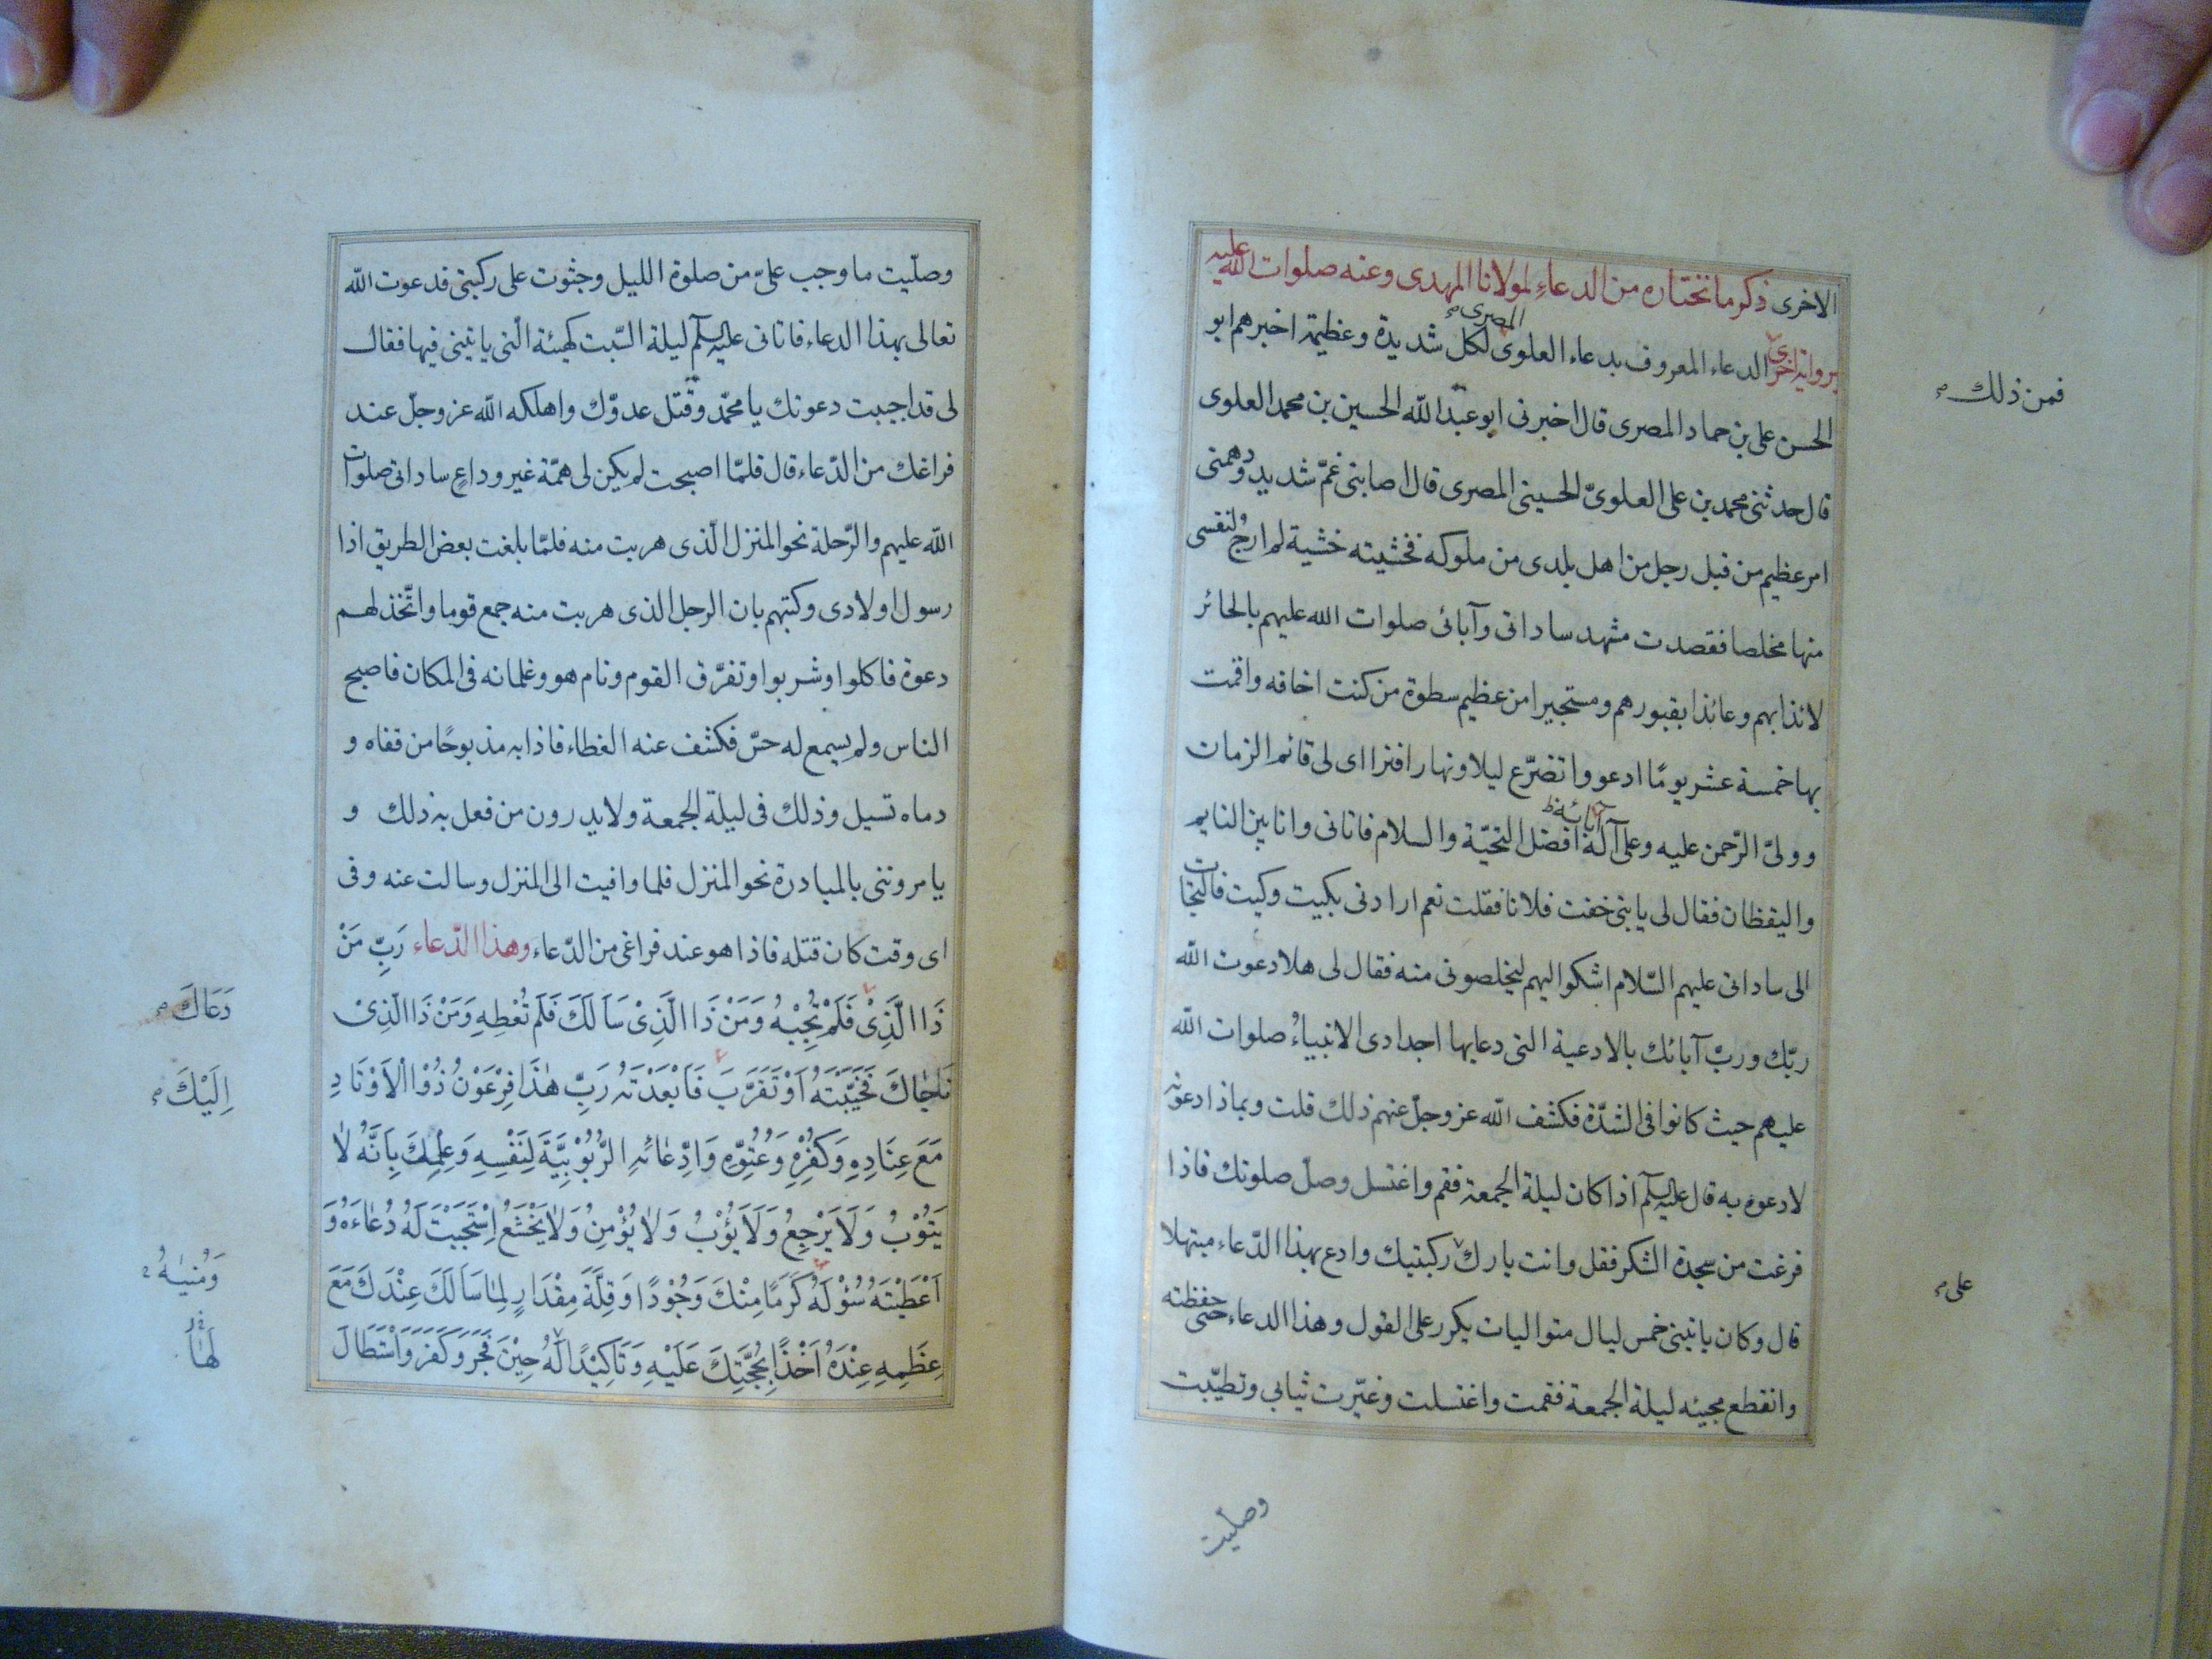 الاخرى ذكر ما نختاره من الدعاءِ لمولانا المهدى وعنه صلوات الله عليه
برواية اخرى الدعاء المعروف بدعاء العلوى المصرى لكل شديدة وعظيمة اخبرهم ابو
فمن ذلك
الحسن على بن حماد المصرى قال اخبرنى ابو عبد الله الحسين بن محمد العلوى
قال حدثنى محمد بن على العلوىّ الحسينى المصرى قال اصابنى غمّ شديد ودهمنى
امر عظيم من قبل رجل من اهل بلدى من ملوكه فخشيته خشية لم ارجُ لنفسى
منها مخلصا فقصدت مشهد ساداتى وآبائى صلوات الله عليهم بالحائر
لائذا بهم وعائذا بقبورهم ومستجيرا من عظيم سطوة من كنت اخافه واقمت
بها خمسة عشر يومًا ادعو واتضرّع ليلا ونهارا فتراءى لى قائم الزمان
وولىّ الرّحمن عليه وعلى آله آبائه افضل التحيّة والسلام فاتانى وانا بين النايم
واليقظان فقال لى يا بنى خفت فلانا فقلت نعم ارادنى بكيت وكيت فالتجات
الى ساداتى عليهم السّلام اشكو اليهم ليخلصونى منه فقال لى هلا دعوت الله
ربّك وربّ آبائك بالادعية التى دعا بها اجدادى الانبياءُ صلوات الله
عليهم حيث كانوا فى الشدّة فكشف الله عز وجلّ عنهم ذلك قلت وبماذا دعوه به
لادعوه به قال عليه السلم اذا كان ليلة الجمعة فقم واغتسل وصلّ صلوتك فاذا
فرغت من سجدة الشكر فقل وانت بارك ركبتيك وادع بهذا الدّعاء مبتهلا
على
قال وكان ياتينى خمس ليال متواليات يكرر على القول وهذا الدعاء حتى حفظته
وانقطع مجيئه ليلة الجمعة فقمت واغتسلت وغيّرت ثيابى وتطيّبت
وصلّيت
وصلّيت ما وجب علىّ من صلوة الليل وجثوت على ركبتى فدعوت الله
تعالى بهذا الدعاء فاتانى عليه السلم ليلة السّبت كهيئة الّتى ياتينى فيها فقال
لى قد اجيبت دعوتك يا محمّد وقتل عدوّك واهلكه الله عز وجلّ عند
فراغك من الدّعاء قال فلمّا اصبحت لم يكن لى همّة غير وداعٍ ساداتى صلوات
الله عليهم والرّحلة نحو المنزل الّذى هربت منه فلمّا بلغت بعض الطريق اذا
رسول اولادى وكتبهم بان الرجل الذى هربت منه جمع قوما واتّخذ لهم
دعوة فاكلوا وشربوا وتفرّق القوم ونام هو وغلمانه فى المكان فاصبح
الناس ولم يسمع له حسّ فكشف عنه الغطاء فاذا به مذبوحًا من قفاه و
دماه تسيل وذلك فى ليلة الجمعة ولا يدرون من فعل به ذلك و
يامروننى بالمبادرة نحو المنزل فلما وافيت الى المنزل وسالت عنه وفى
اى وقت كان قتله فاذا هو عند فراغى من الدّعاء وهذا الدّعاء رَبِّ مَنْ
ذَا الَّذِىْ فَلَمْ تُجِبْهُ وَمَنْ ذَا الَّذِىْ سَاَلَكَ فَلَمْ تُعْطِهِ وَمَنْ ذَا الَّذِىْ
دَعَاكَ
نَاجَاكَ فَخَيَّبْتَهُ اَوْ تَقَرَّبَ فَاَبْعَدْتَهُ رَبِّ هٰذَا فِرْعَوْنُ ذُوْا الْاَوْتَادِ
اِلَيْكَ
مَعَ عِنَادِهِ وَكُفْرِهِ وَعُتُوِّهِ وَادِّعَائِهِ الرُّبُوْبِيَّةَ لِنَفْسِهِ وَعِلْمِكَ بِاَنَّهُ لَا
يَتُوْبُ وَلَا يَرْجِعُ وَلَا يَؤُبُ وَلَا يُؤْمِنُ وَلَا يَخْشَعُ اِسْتَجَبْتَ لَهُ دُعَاءَهُ وَ
وَمُنيٰهُ
اَعْطَيْتَهُ سُؤْلَهُ كَرَمًا مِنْكَ وَجُوْدًا وَقِلَّةَ مِقْدَارٍ لِمَا سَاَلَكَ عِنْدَكَ مَعَ
عِظَمِهِ عِنْدَهُ اَخْذًا بِحُجَّتِكَ عَلَيْهِ وَتَاكِيْدًا لَهُ حِيْنَ فَجَرَ وَكَفَرَ وَاسْتَطَالَ
لَهَا